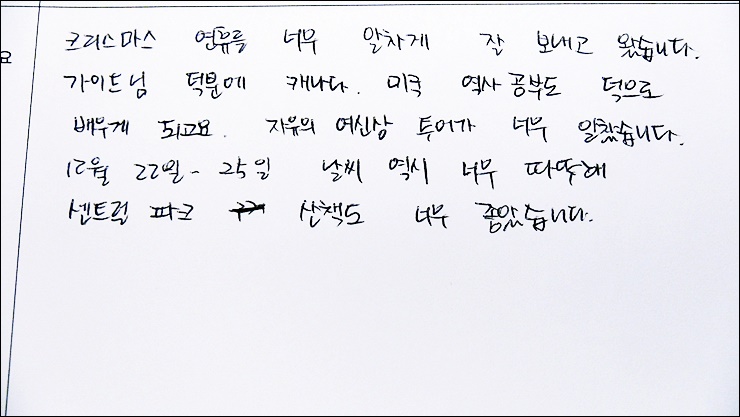 크리스마스 연휴를 너무 알차게 잘 보내고 왔습니다.
요
가이드님 덕분에 캐나다. 미국 역사 공부도 덕으로
배우게 되고요. 자유의 여신상 투어가 너무 알찼습니다.
12월 22일 - 25일 날씨 역시 너무 따뜻해
센트럴 파크 산책도 너무 좋았습니다.